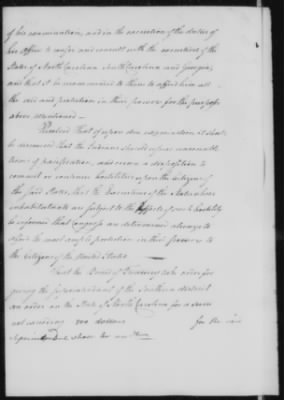 of his nomination, and in the execution of the duties of
his Office to confer and consult with the executives of the
States of North Carolina South Carolina and Georgia;
and that it be recommended to them to afford him all
the aid and protection in their powers for the purposes
above mentioned —
Resolved that if upon due experience it should
be discovered that the Indians should refuse reasonable
terms of pacification, and evince a disposition to
commit or continue hostilities upon the citizens of
the said States, that the Executives of the States whose
inhabitants are subject to the effects of such hostility
be informed that Congress are determined always to
afford the most ample protection in their power to
the citizens of the United States
That the Board of Treasury take order for
giving the Superintendant of the Southern district
an order on the State of South Carolina for a sum
not exceeding dollars for the said